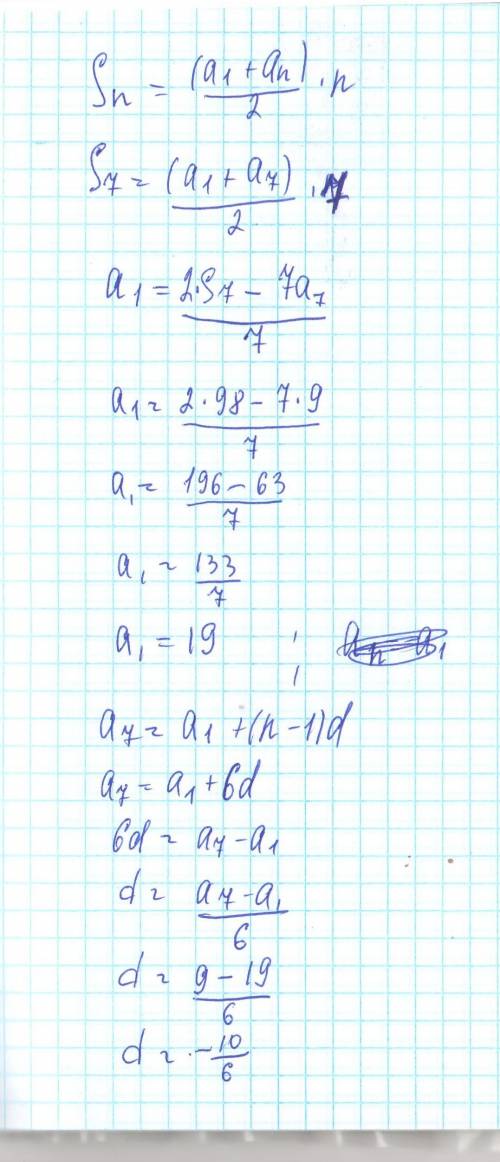 Sn = (a1 + an)/2 · n
S7 = (a1 + a7)/2 · 7
a1 = (2·S7 − 7a7)/7
a1 = (2·98 − 7·9)/7
a1 = (196 − 63)/7
a1 = 133/7
a1 = 19
a7 = a1 + (n − 1)d
a7 = a1 + 6d
6d = a7 − a1
d = (a7 − a1)/6
d = (9 − 19)/6
d = −10/6